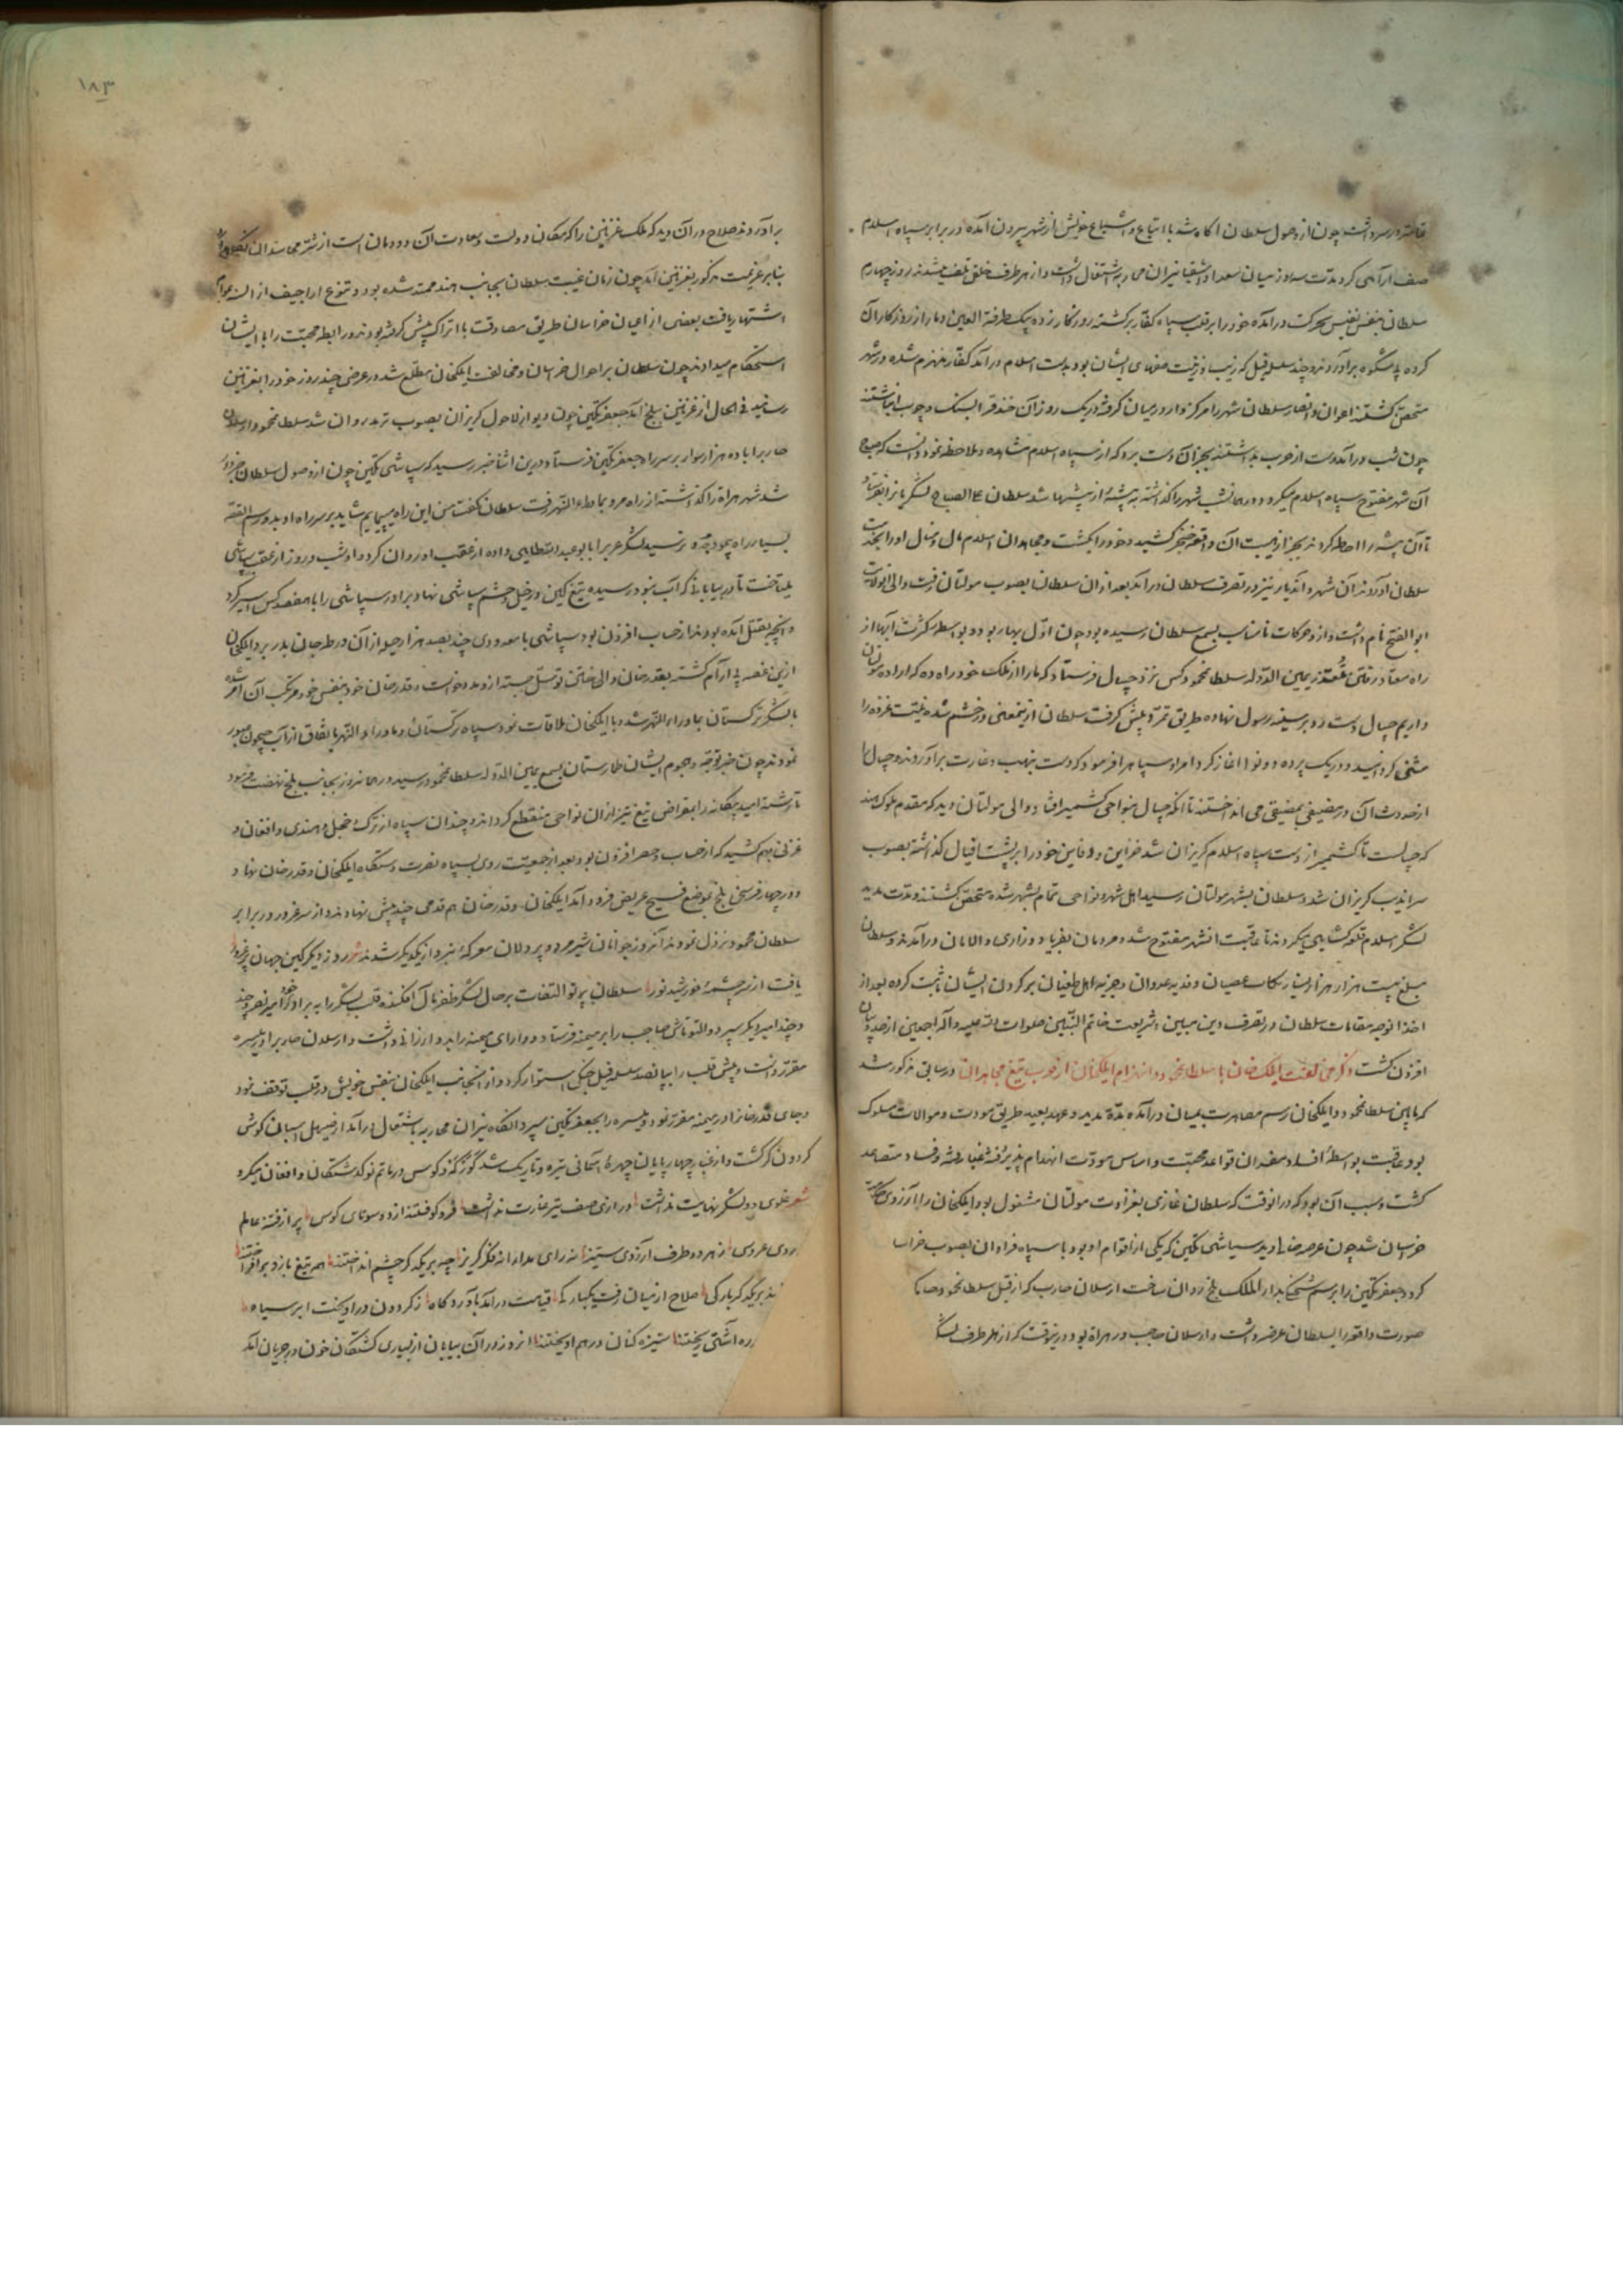 چون از وصول سلطان آکاه شد با اتباع و اشیاع خویش از شهر بیرون آمده در برابر سپاه اسلام
صف آرایی کرد مدت سه روز میان سعدا و اشقیا نیران محاربه اشتغال داشت و از هر طرف خلق تلف میشدند روز چهارم
سلطان بنفس نفیس بحرکت درآمده خود را بر قلب سپاه کفار برکشته روزکار زده بیک طرفة العین دمار از روزکار آن
کرده بر آوردند و چند سلسله فیل که زیب و زینت صفهای ایشان بود بدست اسلام درآمد کفار منهزم شده در شهر
متحصن کشتند اعوان و انصار سلطان شهر را مرکز وار در میان کرفته در یک روز آن خندق را بسنک و چوب انباشتند
چون شب درآمد دست از حرب بداشتند که از سپاه اسلام مشاهده و ملاحظه نمود دانست که صباح
آن شهر مفتوح سپاه اسلام میکردد همان شب شهر را کذاشته به بیشه از بیشها شد سلطان علی الصباح لشکر
تا آن بیشه را احاطه کردند از هیبت آن واقعه خنجر کشید و خود را بکشت و مجاهدان اسلام مال و منال او را بخدمت
سلطان آوردند آن شهر و آن دیار نیز در تصرف سلطان درآمد بعد از آن سلطان بصوب مولتان رفت والی آن ولایت
ابو الفتح نام داشت و از و حرکات نامناسب بسمع سلطان رسیده بود چون اول بهار بود و بواسطه کثرت آبها از
راه متعذر یمین الدوله سلطان محمود کس نزد جیبال فرستاد که ما را از ملک خود راه ده که اراده مولتان
داریم جیبال دست رد بر سینه رسول نهاده طریق تمرد پیش کرفت سلطان ازین معنی در خشم شده نیت غزوه را
مثنی کردانید و در یک پرده دو نوا آغاز کرد امرا و سپاه را فرمود که دست بنهب و غارت برآوردند و جیبال را
از آن در مضیقی بمضیقی می انداختند تا آنکه جیبال بنواحی کشمیر افتاد و والی مولتان دید که مقدم ملوک هند
که جیبالست تا کشمیر از دست سپاه اسلام کریزان شد خزاین و دفاین خود را بر پشت افیال کذاشته بصوب
سراندیب کریزان شد و سلطان بشهر مولتان رسید اهل شهر و نواحی تمام بشهر شده متحصن کشتند و مدت مدید
لشکر اسلام قلعه کشایی میکردند تا عاقبت آن شهر مفتوح شد و مردمان بفریاد و زاری و الامان درآمدند و سلطان
مبلغ بیست هزار هزار عصیان و فدیه عدوان و جزیه اهل طغیان بر کردن ایشان ثبت کرده بعد از
اخذ آن وجه مقامات سلطان در تصرف دین مبین و شریعت خاتم النبیین صلوات الله علیه و آله اجمعین از حد بیان
افزون کشت ذکر مخالفت ایلک خان با سلطان محمود و انهزام ایلکخان از ضرب تیغ مجاهدان در سابق مذکور شد
که مابین سلطان محمود و ایلکخان رسم مصاهرت بمیان درآمده مدة مدید و عهد بعید طریق مودت و موالات مسلوک
بود عاقبت بواسطه افساد مفسدان قواعد محبت و اساس مودت انهدام پذیرفته غبار فتنه و فساد متصاعد
کشت و سبب آن بود که در آنوقت که سلطان غازی بغزاوت مولتان مشغول بود ایلکخان را آرزوی
خراسان شد چون عرصه خالی دید سپاشی تکین که یکی از اقوام او بود با سپاه فراوان بصوب خراسان
کرد و جعفر تکین را برسم شحنکی بدار الملک بلخ روان ساخت ارسلان جاذب که از قبل سلطان محمود
صورت واقعه را بسلطان عرضه داشت و ارسلان حاجب در هراة بود درینوقت که از هر طرف
۱۸۳
برآوردند صلاح در آن دید که ملک غزنین را که مکان دولت و سعادت آن دودمان است از شر حاسدان
بنا بر عزیمت مذکور بغزنین آمد چون زمان غیبت سلطان بجانب هند ممتد شده بود و تنوع اراجیف از السنه عوام
اشتهار یافت بعضی از اعیان خراسان طریق مصادقت با اتراک پیش کرفته بودند و رابطه محبت را با ایشان
استحکام میدادند چون سلطان بر احوال خراسان و مخالفت ایلکخان مطلع شد در عرض چند روز خود را بغزنین
رسانید فی الحال از غزنین ببلخ آمد جعفر تکین چون دیو از لاحول کریزان بصوب ترمد روان شد سلطان محمود ارسلان
جاذب را با ده هزار سوار بر سر راه جعفر تکین فرستاد درین اثنا خبر رسید که سپاشی تکین چون از وصول سلطان خبردار
شد شهر هراة را کذاشته از راه مرو بماوراء النهر رفت سلطان کفت من این راه بپیمایم شاید بر سر راه او بدو رسم القصه
بسیار راه پیمود و بدو نرسید لشکر عرب را بابو عبد الله طایی داده از عقب او روان کرد و او شب و روز از عقب سپاشی
میتاخت تا در بیابانی که آب نبود رسیده تیغ کین در خیل و حشم سپاشی نهاد برادر سپاشی را با هفتصد کس اسیر کرد
و آنچه بقتل آمده بودند از حساب افزون بود سپاشی با معدودی چند بصد هزار حیله از آن ورطه جان بدر برد ایلکخان
ازین غصه بی آرام کشته بقدر خان والی ختن توسل جسته از و مدد خواست و قدر خان خود بنفس خود مرتکب آن امر شده
با لشکر ترکستان بماوراء النهر شد و با ایلکخان ملاقات نمود سپاه ترکستان و ماوراء النهر باتفاق از آب جیحون عبور
نمودند چون خبر توجه و هجوم ایشان طخارستان بسمع یمین الدوله سلطان محمود رسید در همان روز بجانب بلخ نهضت فرمود
تا رشته امید بیکانه را بمقراض تیغ تیز از آن نواحی منقطع کرداند و چندان سپاه از ترک و خلج و هندی و افغان و
غزنی بهم کشید که از حساب و حصر افزون بود بعد از جمعیت روی بسپاه نصرت دستکاه ایلکخان و قدر خان نهاد و
در چهار فرسخی بلخ بموضع فسیح عریض فرود آمد ایلکخان و قدر خان هم قدمی چند پیش نهادند و از سر غرور در برابر
سلطان محمود نزول نمودند آنروز جوانان شیرمرد و پردلان معرکه نبرد از یکدیکر شدند روز دیکر کین جهان
یافت از سرچشمه خورشید نور سلطان پرتو التفات بر حال لشکر ظفر مآل افکنده قلب لشکر را به برادر خود امیر نصر
و چند امیر دیکر سپرد و التونتاش حاجب را بر میمنه فرستاد و دارایی میمنه را بدو ارزانی داشت و ارسلان جاذب را در میسره
مقرر داشت و پیش قلب را بپانصد سلسله فیل جنکی استوار کرد و از آنجانب ایلکخان بنفس خویش در قلب توقف نمود
و جای قدرخان را در میمنه مقرر نمود و میسره را بجعفر تکین سپرد آنکاه نیران محاربه باشتعال درآمد از صهیل اسبان کوش
کردون کر کشت و از غبار چهارپایان چهره آسمانی تیره و تاریک شد و کوس در ماتم نو کذشتکان افغان میکرد
شعر دو لشکر نهایت نداشت درازی صف تیر غارت نداشت فرو کوفتند از دو سو نای کوس پر از فتنه عالم
عروسی ز هر دو طرف آرزوی ستیز نه رای مدارا نه فکر کریز چه بر یکدکر چشم انداختند همه تیغ بازو برافراختند
بر یکدکر بارکی صلاح از میان رفت یکبارکی قیامت درآمد ز کردون درآویخت ابر سیاه
ره آشتی ریختند ستیزه کنان درهم آویختند آنروز در آن بیابان از بسیاری کشتکان خون در جریان آمد